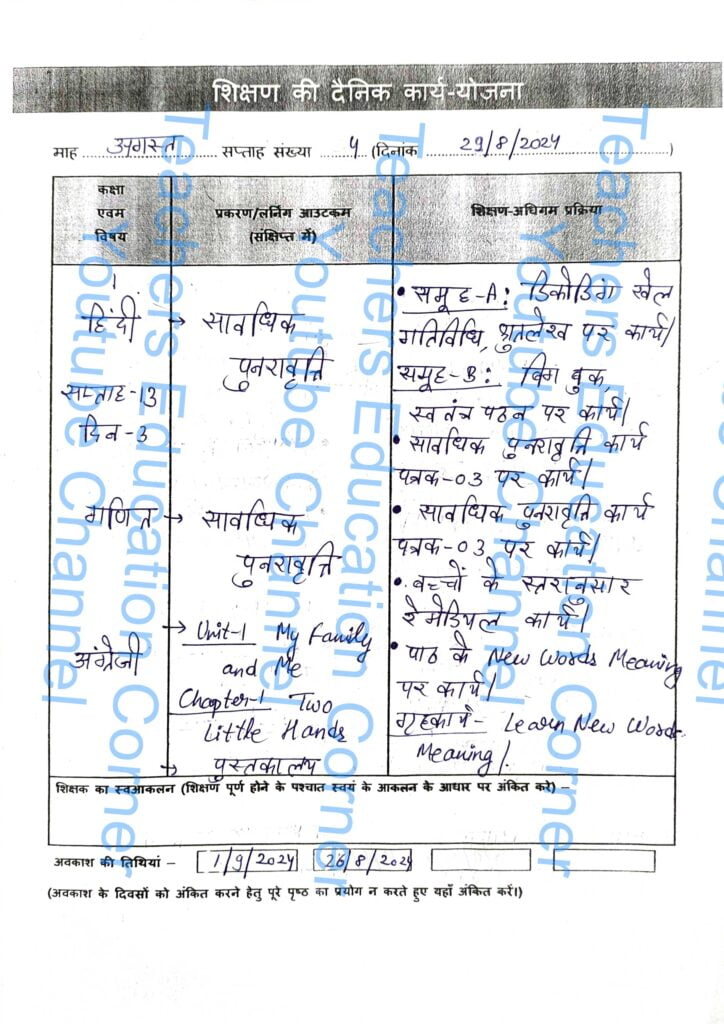 शिक्षण की दैनिक कार्य-योजना
माह अगस्त सप्ताह संख्या 4 (दिनांक 29/8/2024)
कक्षा
एवम
विषय
प्रकरण/लर्निंग आउटकम
(संक्षिप्त में)
शिक्षण-अधिगम प्रक्रिया
हिंदी → सावधिक
पुनरावृत्ति
सप्ताह-13
दिन-3
• समूह-A: डिकोडिंग खेल
गतिविधि, श्रुतलेख पर कार्य।
समूह-B: बिग बुक,
स्वतंत्र पठन पर कार्य।
• सावधिक पुनरावृत्ति कार्य
पत्रक-03 पर कार्य।
गणित → सावधिक
पुनरावृत्ति
• सावधिक पुनरावृत्ति कार्य
पत्रक-03 पर कार्य।
• बच्चों के स्तरानुसार
रेमेडियल कार्य।
अंग्रेजी
→ Unit-1 My Family
and Me
Chapter-1 Two
Little Hands
→ पुस्तकालय
• पाठ के New Words Meaning
पर कार्य।
गृहकार्य- Learn New Words
Meaning।
शिक्षक का स्वआकलन (शिक्षण पूर्ण होने के पश्चात स्वयं के आकलन के आधार पर अंकित करे) –
अवकाश की तिथियां – 1/9/2024 26/8/2024
(अवकाश के दिवसों को अंकित करने हेतु पूरे पृष्ठ का प्रयोग न करते हुए यहाँ अंकित करें।)
Teachers Education Corner
Youtube Channel
Teachers Education Corner
Youtube Channel
Teachers Education Corner
Youtube Channel